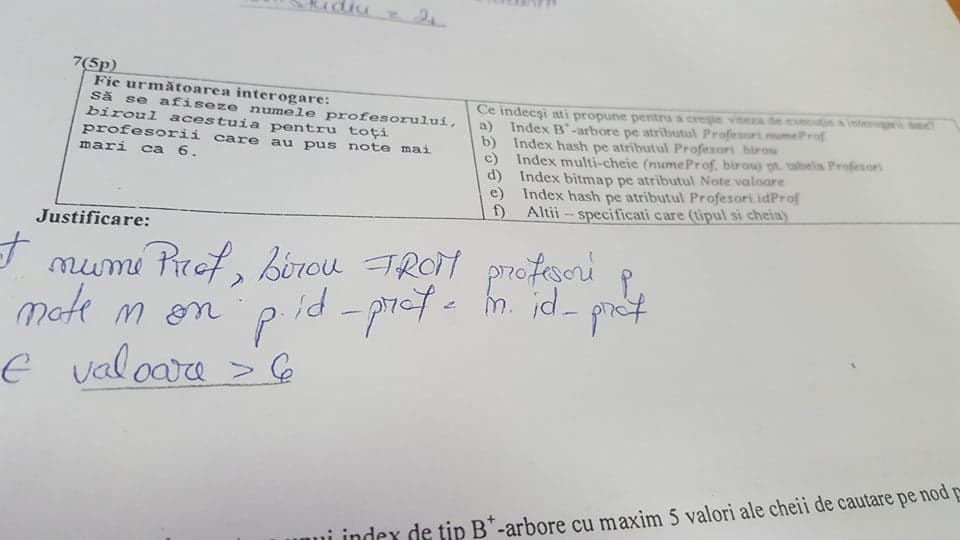 7(5p)
Fie următoarea interogare:
Să se afiseze numele profesorului,
biroul acestuia pentru toți
profesorii care au pus note mai
mari ca 6.
Ce indecși ati propune pentru a crește viteza de execuție a interogarii date?
a) Index B+-arbore pe atributul Profesori.numeProf
b) Index hash pe atributul Profesori.birou
c) Index multi-cheie (numeProf, birou) pt. tabela Profesori
d) Index bitmap pe atributul Note.valoare
e) Index hash pe atributul Profesori.idProf
f) Altii – specificati care (tipul si cheia)
Justificare:
nume Prof, birou FROM profesori p
note n on p.id_prof = n.id_prof
E valoare > 6
index de tip B+-arbore cu maxim 5 valori ale cheii de cautare pe nod